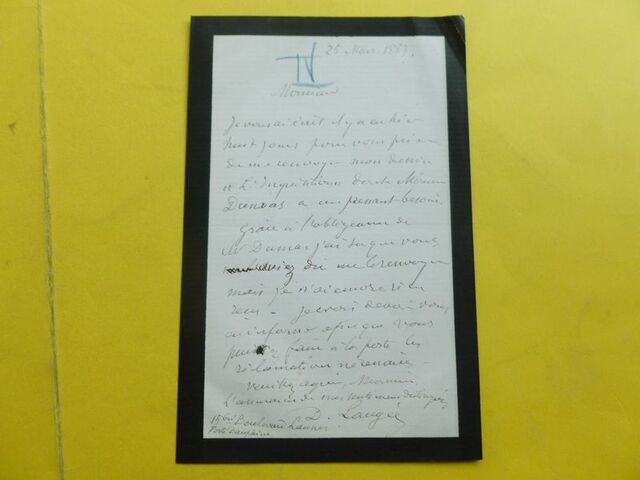 25 Mars 1887.
IV
Monsieur
Je vous ai écrit il y a eu hier
huit jours pour vous prier
de me renvoyer mon dessin
et L'Inquisition dont Monsieur
Dumas a un pressant besoin.
Grâce à l'obligeance de
Mr Dumas j'ai su que vous
dû me le renvoyer
mais je n'ai encore rien
reçu - je crois devoir vous
en informer afin que vous
puissiez faire à la poste les
réclamations nécessaires
Veuillez agréer, Monsieur
L'assurance de mes sentiments distingués
D. Laugée
15 bis Boulevard Lannes
Porte Dauphine